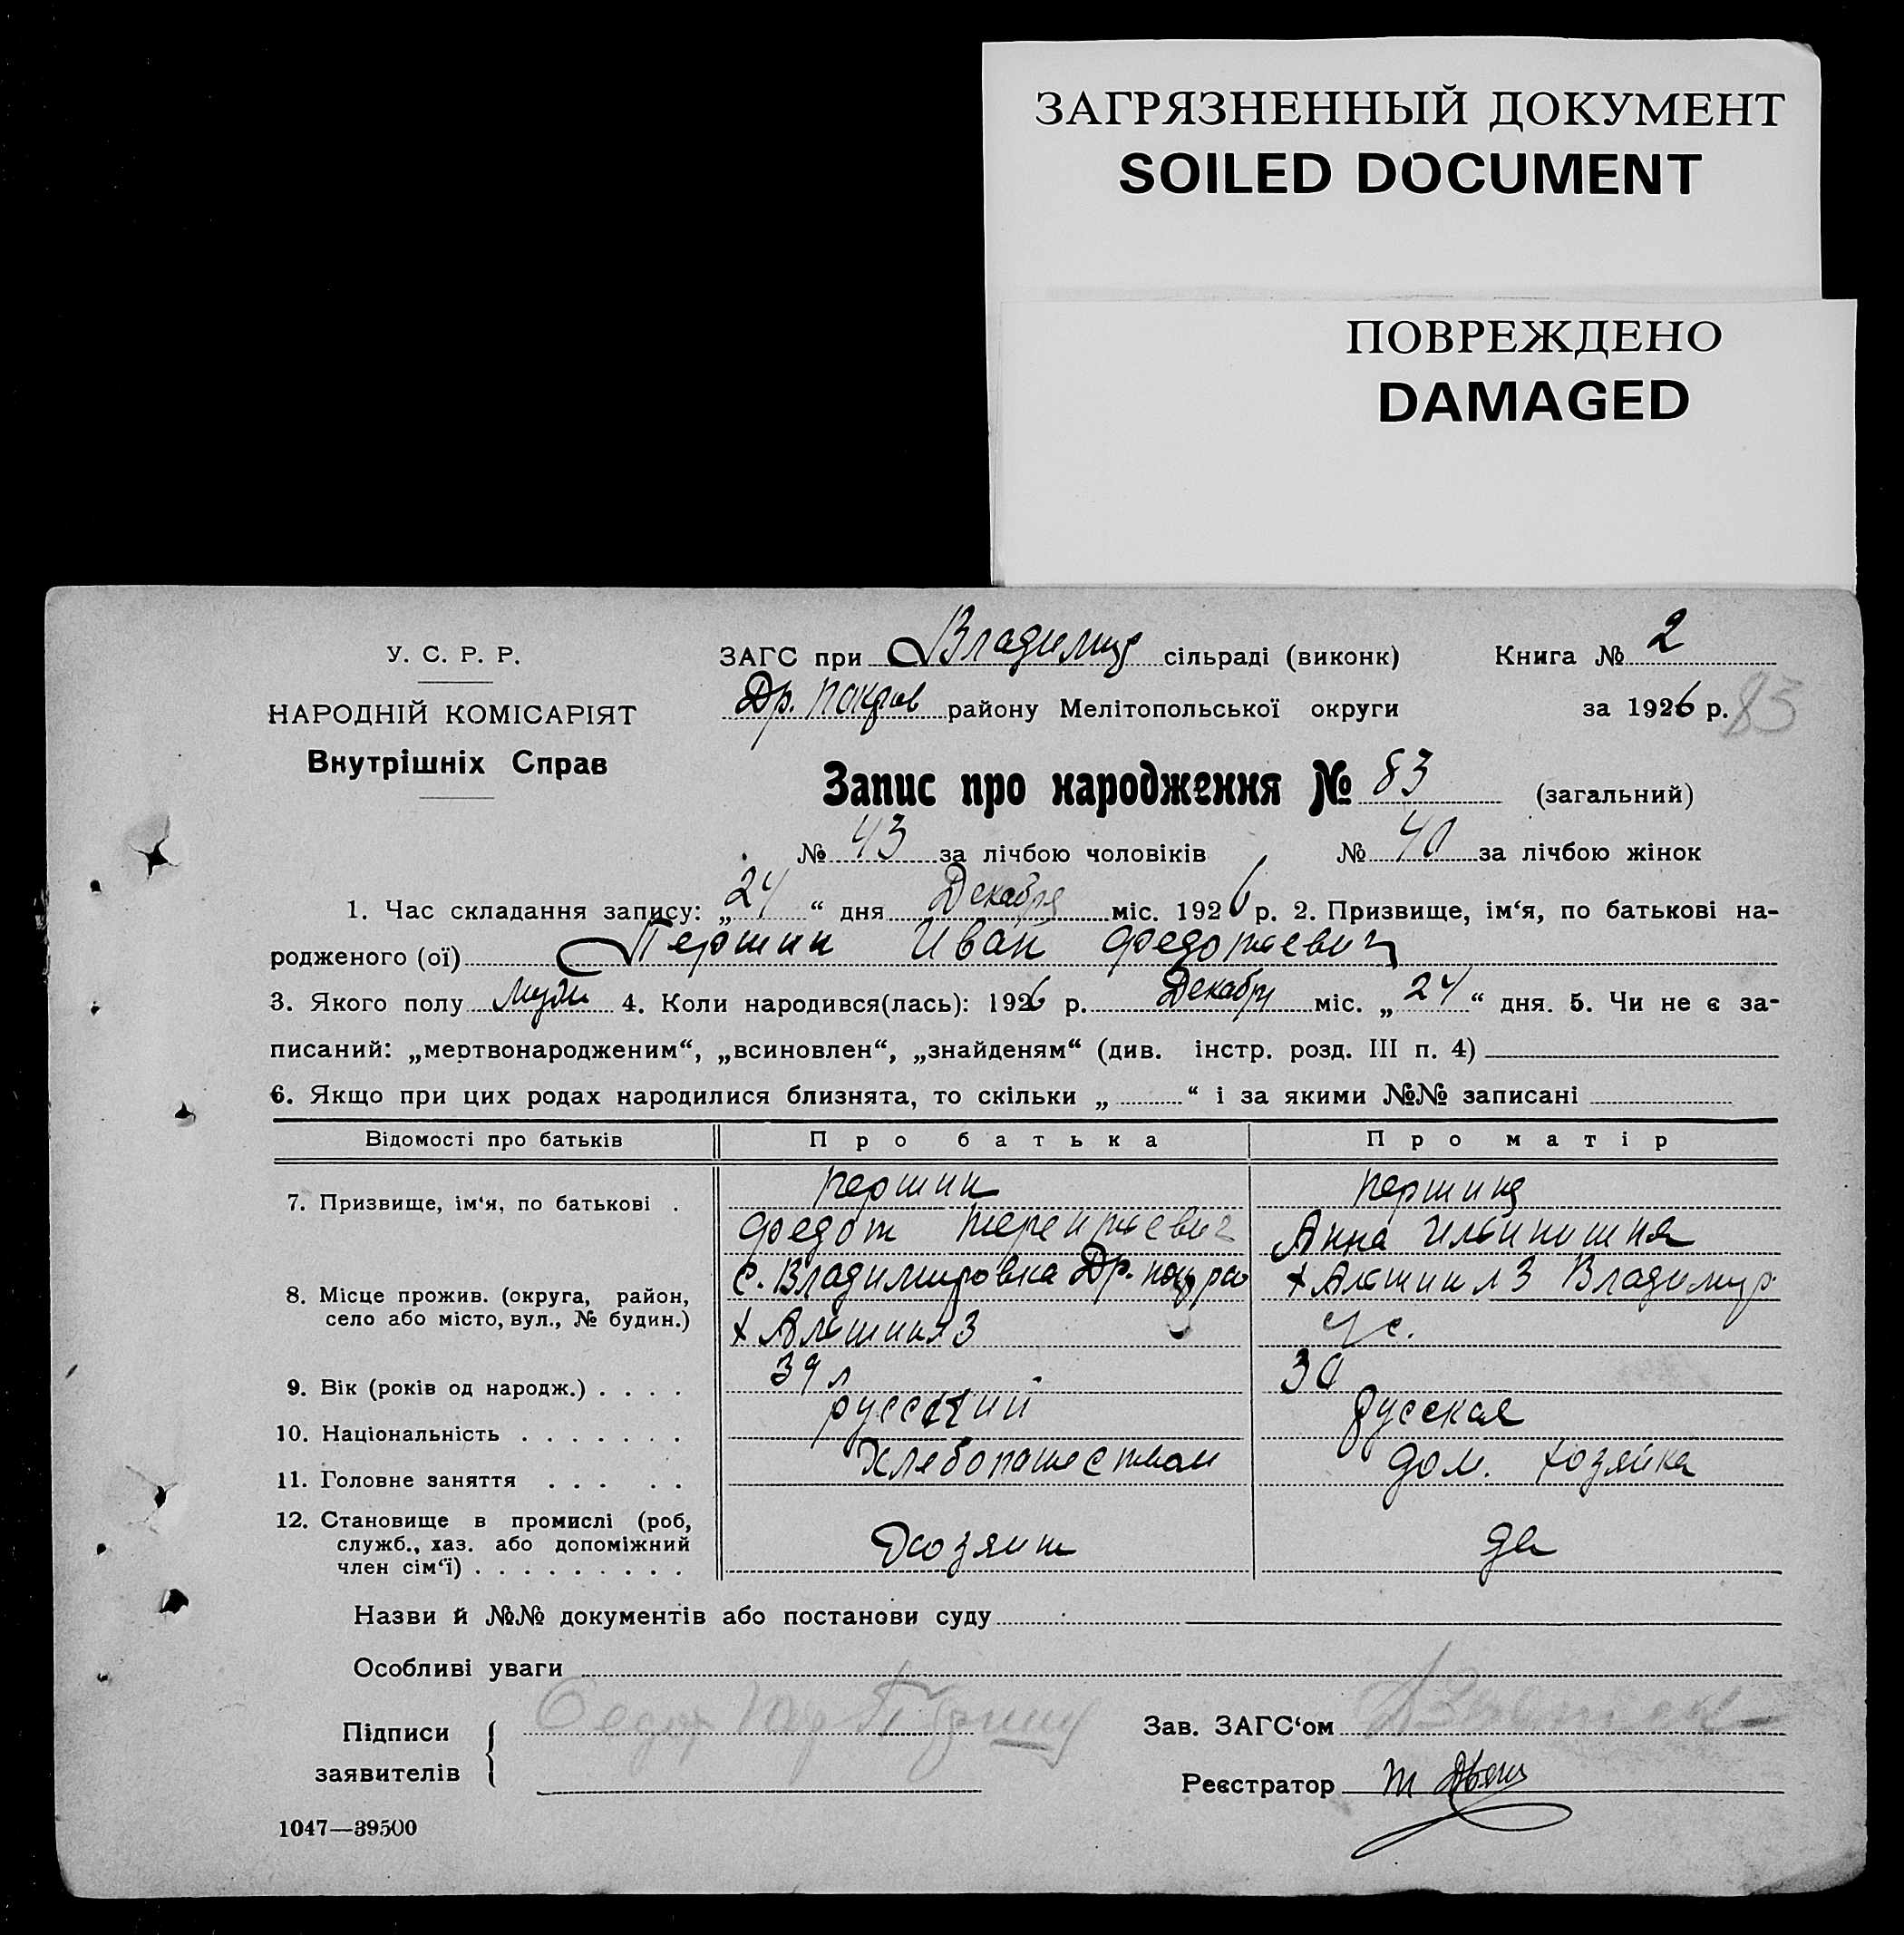 ЗАГРЯЗНЕННЫЙ ДОКУМЕНТ
SOILED DOCUMENT
ПОВРЕЖДЕНО
DAMAGED
У. С. Р. Р.
НАРОДНІЙ КОМІСАРІЯТ
Внутрішніх Справ
ЗАГС при Владимир сільраді (виконк) Книга № 2
Др. Покров району Мелітопольської округи за 1926 р. 83
Запис про народження № 83 (загальний)
№ 43 за лічбою чоловіків № 40 за лічбою жінок
1. Час складання запису: „24“ дня Декабря міс. 1926 р. 2. Призвище, ім‘я, по батькові на-
родженого (ої) Першин Иван Федотьевич
3. Якого полу муж 4. Коли народився(лась): 1926 р. Декабря міс. „24“ дня. 5. Чи не є за-
писаний: „мертвонародженим“, „всиновлен“, „знайденям“ (див. інстр. розд. III п. 4)
6. Якщо при цих родах народилися близнята, то скільки „ “ і за якими №№ записані
Відомості про батьків Про батька Про матір
7. Призвище, ім‘я, по батькові . Першин Першина
Федот Терентьевич Анна Ильинишна
8. Місце прожив. (округа, район, с. Владимировка Др. пок ра х Алешин л 3 Владимир
село або місто, вул., № будин.) х Алешина 3 с/с.
9. Вік (років од народж.) . . . . 39 л 30
10. Національність . . . . . . . русский русская
11. Головне заняття . . . . . Хлебопашеством дом. хозяйка
12. Становище в промислі (роб,
служб., хаз. або допоміжний Хозяин да
член сім‘ї) . . . . . . . . .
Назви й №№ документів або постанови суду
Особливі уваги
Підписи Зав. ЗАГС‘ом
заявителів Реєстратор
1047—39500